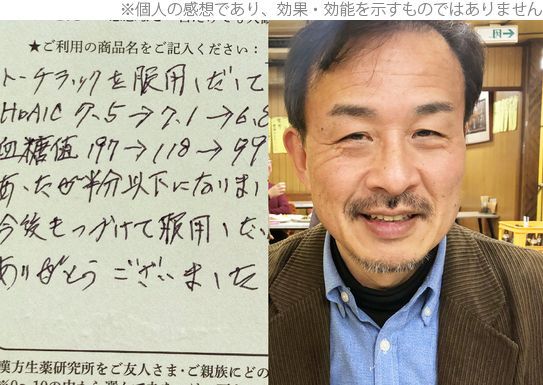 ※個人の感想であり、効果・効能を示すものではありません
★ご利用の商品名をご記入ください：
トーチラックを服用しだして
HbA1C 7.5→7.1→6.8
血糖値 197→118→99
あったが半分以下になりまし
今後もつづけて服用したい
ありがとうございました
漢方生薬研究所をご友人さま・ご親族にどの